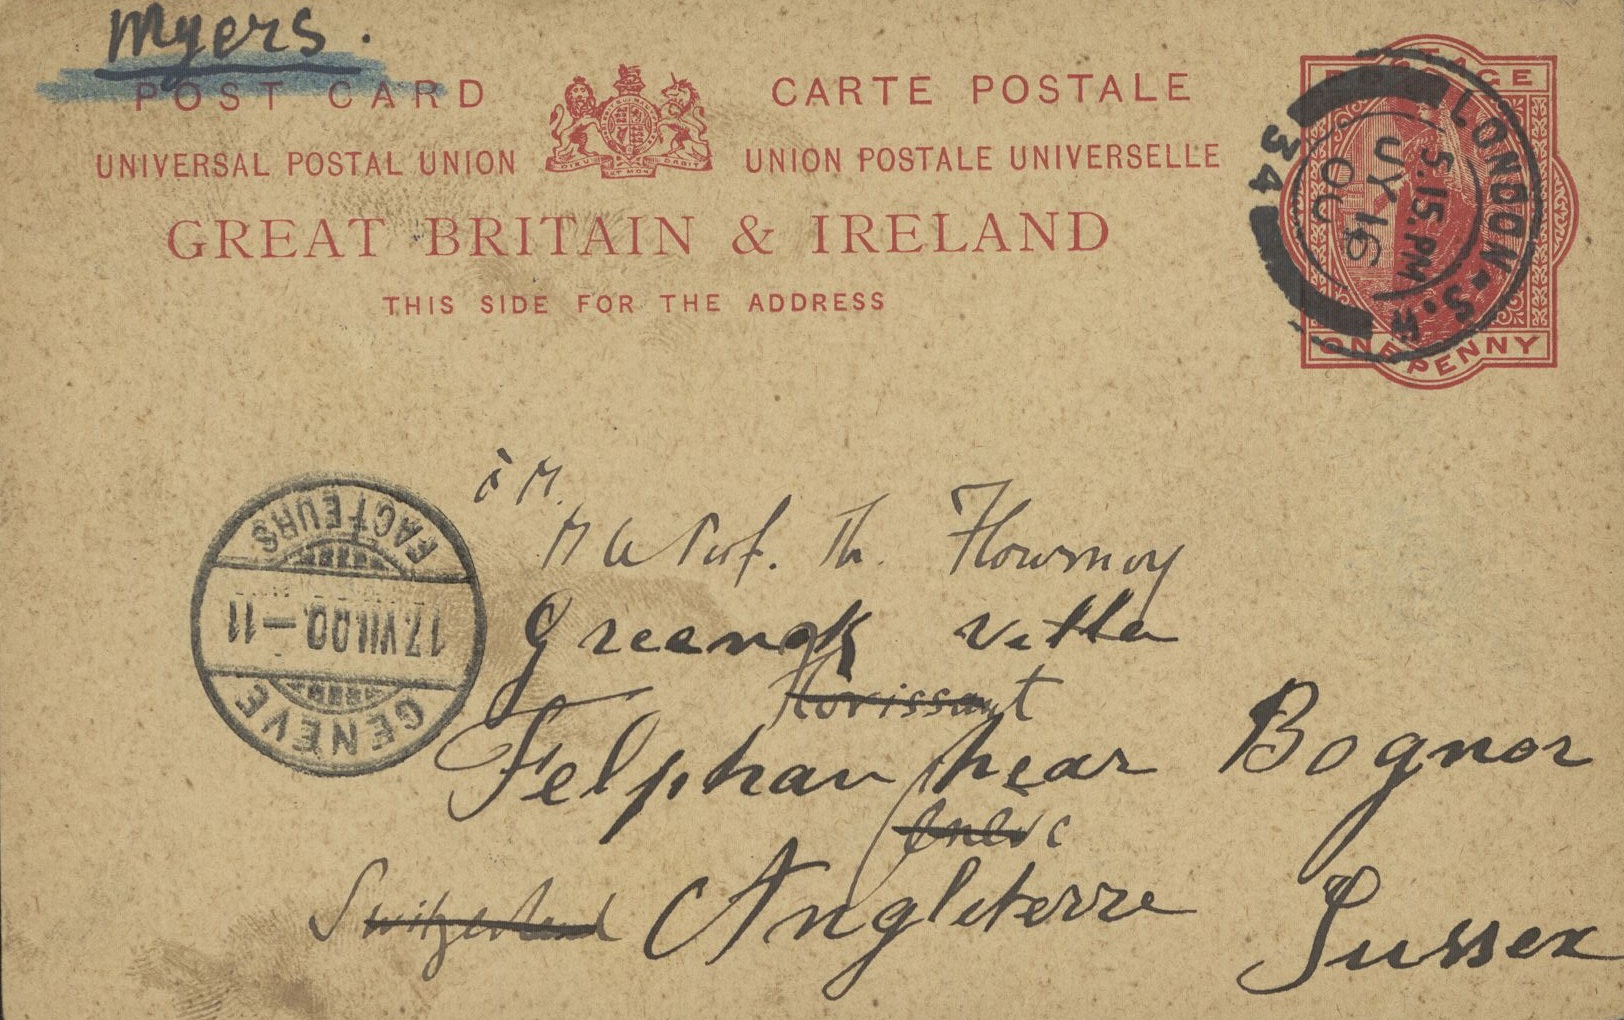 Myers.
POST CARD CARTE POSTALE
UNIVERSAL POSTAL UNION UNION POSTALE UNIVERSELLE
GREAT BRITAIN & IRELAND
THIS SIDE FOR THE ADDRESS
POSTAGE
ONE PENNY
LONDON. S.W.
5.15.PM
JY 16
00
34
à M.
Prof. Th. Flournoy
villa
Florissant
Felphan near Bognor
Genève
Switzerland Angleterre Sussex
GENEVE
17.VII.00.-11
FACTEURS